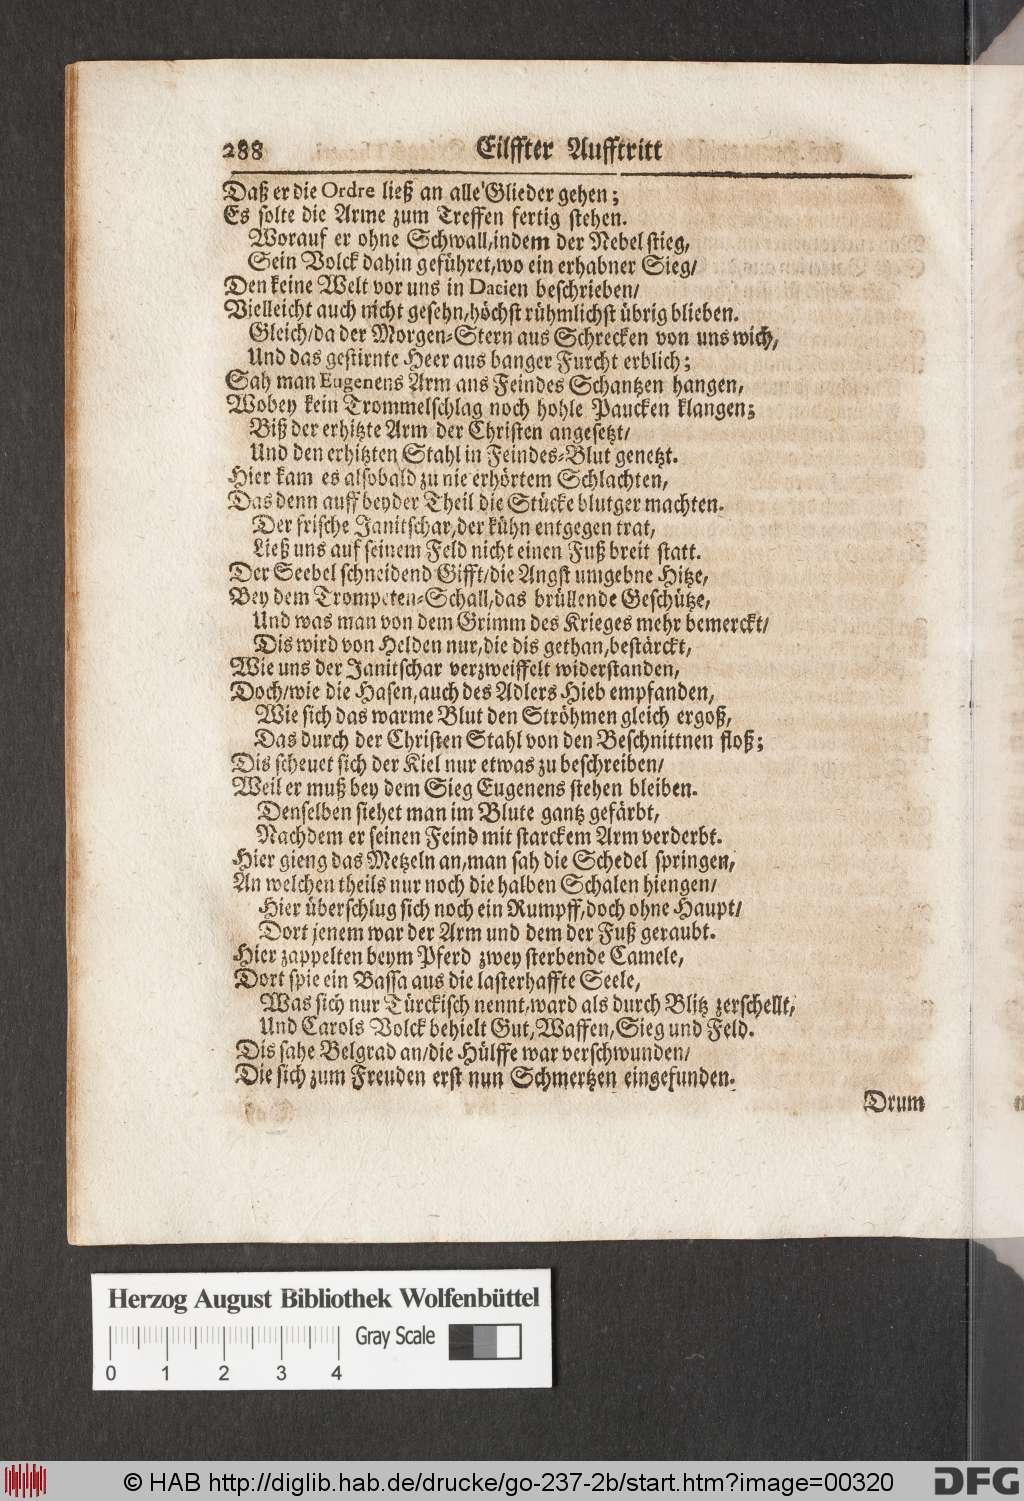 288 Eilffter Aufftritt
Daß er die Ordre ließ an alle Glieder gehen;
Es solte die Arme zum Treffen fertig stehen.
Worauf er ohne Schwall, indem der Nebel stieg,
Sein Volck dahin geführet, wo ein erhabner Sieg/
Den keine Welt vor uns in Dacien beschrieben/
Vielleicht auch nicht gesehn, höchst rühmlichst übrig blieben.
Gleich/ da der Morgen-Stern aus Schrecken von uns wich,
Und das gestirnte Heer aus banger Furcht erblich;
Sah man Eugenens Arm ans Feindes Schantzen hangen,
Wobey kein Trommelschlag noch hohle Paucken klangen;
Biß der erhitzte Arm der Christen angesetzt/
Und den erhitzten Stahl in Feindes-Blut genetzt.
Hier kam es alsobald zu nie erhörtem Schlachten,
Das denn auff beyder Theil die Stücke blutger machten.
Der frische Janitschar, der kühn entgegen trat,
Ließ uns auf seinem Feld nicht einen Fuß breit statt.
Der Seebel schneidend Gifft/ die Angst umgebne Hitze,
Bey dem Trompeten-Schall, das brüllende Geschütze,
Und was man von dem Grimm des Krieges mehr bemerckt/
Dis wird von Helden nur, die dis gethan, bestärckt,
Wie uns der Janitschar verzweiffelt widerstanden,
Doch/ wie die Hasen, auch des Adlers Hieb empfanden,
Wie sich das warme Blut den Ströhmen gleich ergoß,
Das durch der Christen Stahl von den Beschnittnen floß;
Dis scheuet sich der Kiel nur etwas zu beschreiben/
Weil er muß bey dem Sieg Eugenens stehen bleiben.
Denselben siehet man im Blute gantz gefärbt,
Nachdem er seinen Feind mit starckem Arm verderbt.
Hier gieng das Metzeln an, man sah die Schedel springen,
An welchen theils nur noch die halben Schalen hiengen/
Hier überschlug sich noch ein Rumpff, doch ohne Haupt/
Dort jenem war der Arm und dem der Fuß geraubt.
Hier zappelten beym Pferd zwey sterbende Camele,
Dort spie ein Bassa aus die lasterhaffte Seele,
Was sich nur Türckisch nennt, ward als durch Blitz zerschellt,
Und Carols Volck behielt Gut, Waffen, Sieg und Feld.
Dis sahe Belgrad an/ die Hülffe war verschwunden/
Die sich zum Freuden erst nun Schmertzen eingefunden.
Drum
Herzog August Bibliothek Wolfenbüttel
Gray Scale
0 1 2 3 4
© HAB http://diglib.hab.de/drucke/go-237-2b/start.htm?image=00320
DFG